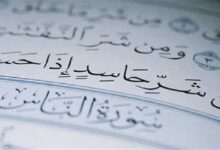 وَمِن شَرِّ النَّفَّٰثَٰ
شَرِّ حَاسِدٍ إِذَا حَسَدَ
سُورَةُ النَّاسِ